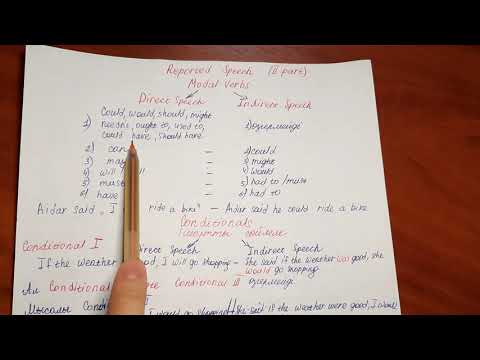 Reported Speech (II part)
Modal Verbs
Direct Speech Indirect Speech
Could, would, should, might
1) needn't, ought to, used to, 1) өзгермейді
could have, should have
2) can – 2) could
3) may – 3) might
4) will – 4) would
5) must – 5) had to / must
6) have – 6) had to
Aidar said "I ride a bike" – Aidar said he could ride a bike
Conditionals
шартты сөйлем
Conditional I Direct Speech Indirect Speech
If the weather good, I will go shopping – She said if the weather was good, she
would go shopping
Ал Conditional Conditional III өзгермейді
Мысалы I would go shopping she said if the weather were good, I would